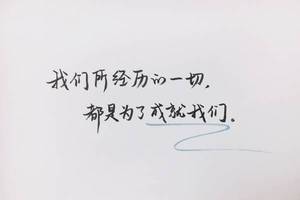 我们所经历的一切，
都是为了成就我们。